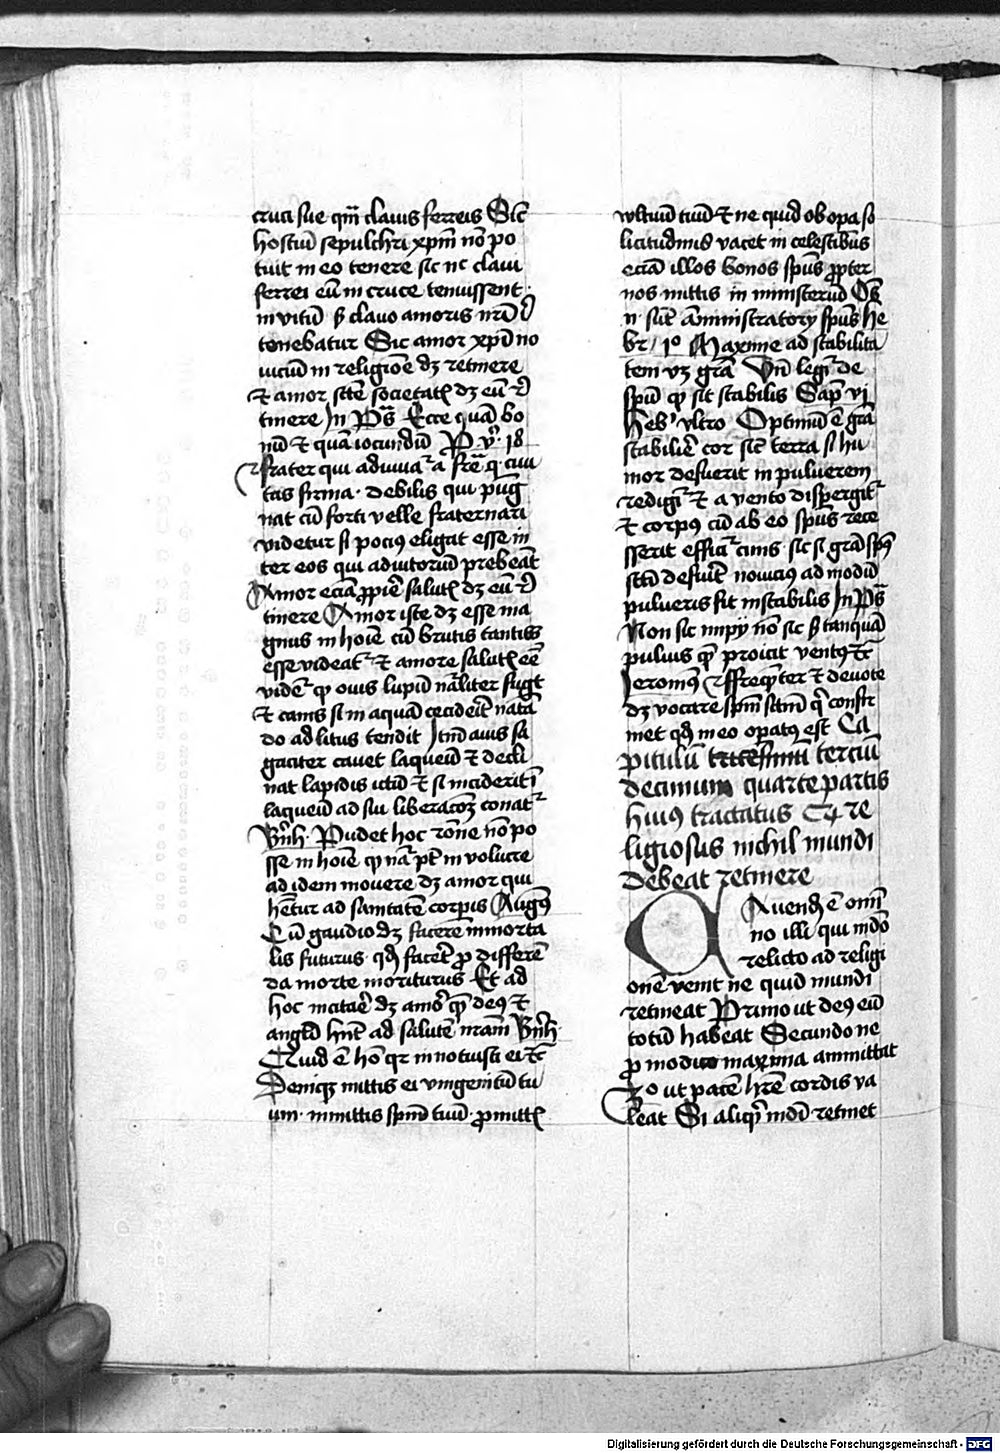 cruci sue qm̄ clauis ferreis Sic̄
hostiū sepulchri xpm̄ nō po
tuit in eo tenere sic nc̄ claui
ferrei eū in cruce tenuissent ·
in vitū s̄ clauo amoris nr̄i d̄
tenebatur Sic amor xp̄i no
uiciū in religiōe dꝫ retinere
⁊ amor sc̄te societatꝭ dꝫ eū de
tinere In pš Ecce quā bo
nū ⁊ quā iocundū P v̓ · 18
frater qui adiuuaᷣ a frē q̄ ciui
tas firma · debilis qui pug
nat cū forti velle fraternari
videtur si pociꝰ eligat esse in
ter eos qui adiutoriū prebeāt
Amor eciā ꝓpie salutꝭ dꝫ eū de
tinere Amor iste dꝫ esse ma
gnus in hoīe cū brutis tantus
esse videatᷣ ⁊ amore salutꝭ eē
videᷣ qꝫ ouis lupū nāliter fugit
⁊ canis si in aquā ceciderit nata
do ad litus tendit Itm̄ auis sa
gaciter cauet laqueū ⁊ decli
nat lapidis ictū ⁊ si inciderit ī
laqueū ad sui liberacōꝫ conatᷣ
Bn̄h · Pudet hoc rōne nō po
sse in hoīe qꝫ nā pt̄ in volucre
ad idem mouere dꝫ amor qui
hētur ad sanitatē corpis Augꝰ
Cū gaudio dꝫ facere immorta
lis futurus · qđ facet̄ ꝓ differē
da morte moriturus Et ad
hoc incitar̄e dꝫ amōr quē deꝰ ⁊
angeli hn̄t ad salutē nr̄am Bn̄h ·
Quid ē hō qr̄ innotuisti ei ⁊c̄
Deniqꝫ mittis ei vnigenitū tu
um · inmittis spm̄ tuū · ꝓmittꝭ
vultum tuū ⁊ ne quid ob opa so
licitudinis vacet in celestibus
eciā illos bonos spūs ꝓpter
nos mittis in ministeriū Oēs
n̄ · sūt amministratorij spūs he
br · 1º Maxime ad stabilita
tem vꝫ grā Vn̄ legiᷣ de
spū qꝫ sit stabilis Sap vij
Heb̓ vltro Optimū ē grā
stabilire cor sic̄ terra si hu
mor defuerit in puluerem
redigiᷣ ⁊ a vento dispergitᷣ
⁊ corpꝰ cū ab eo spūs rece
sserit efficiᷣ cinis sic si grā spūs
sctī defuerit nouiciꝰ ad modū
pulueris fit instabilis In pš
Non sic impij nō sic s̄ tanquā
puluis quē proicit ventꝰ ⁊c̄
Jeronimꝰ Et freqn̄ter ⁊ deuote
dꝫ vocare spm̄ sctm̄ qꝫ confir
met qđ in eo opatꝰ est Ca
pitulū tricesimū terciū
decimum quarte partis
huiꝰ tractatus Qꝫ re
ligiosus nichil mundi
debeat retinere
Cauendū ē omī
no illi qui mdō
relicto ad religi
onē venit ne quid mundi
retineat Primo ut deꝰ eū
totū habeat Secundo ne
ꝓ modico maxima ammittat
3o ut pacē hr̄e cordis va
leat Si aliquid mdī retinet
Digitalisierung gefördert durch die Deutsche Forschungsgemeinschaft - DFG